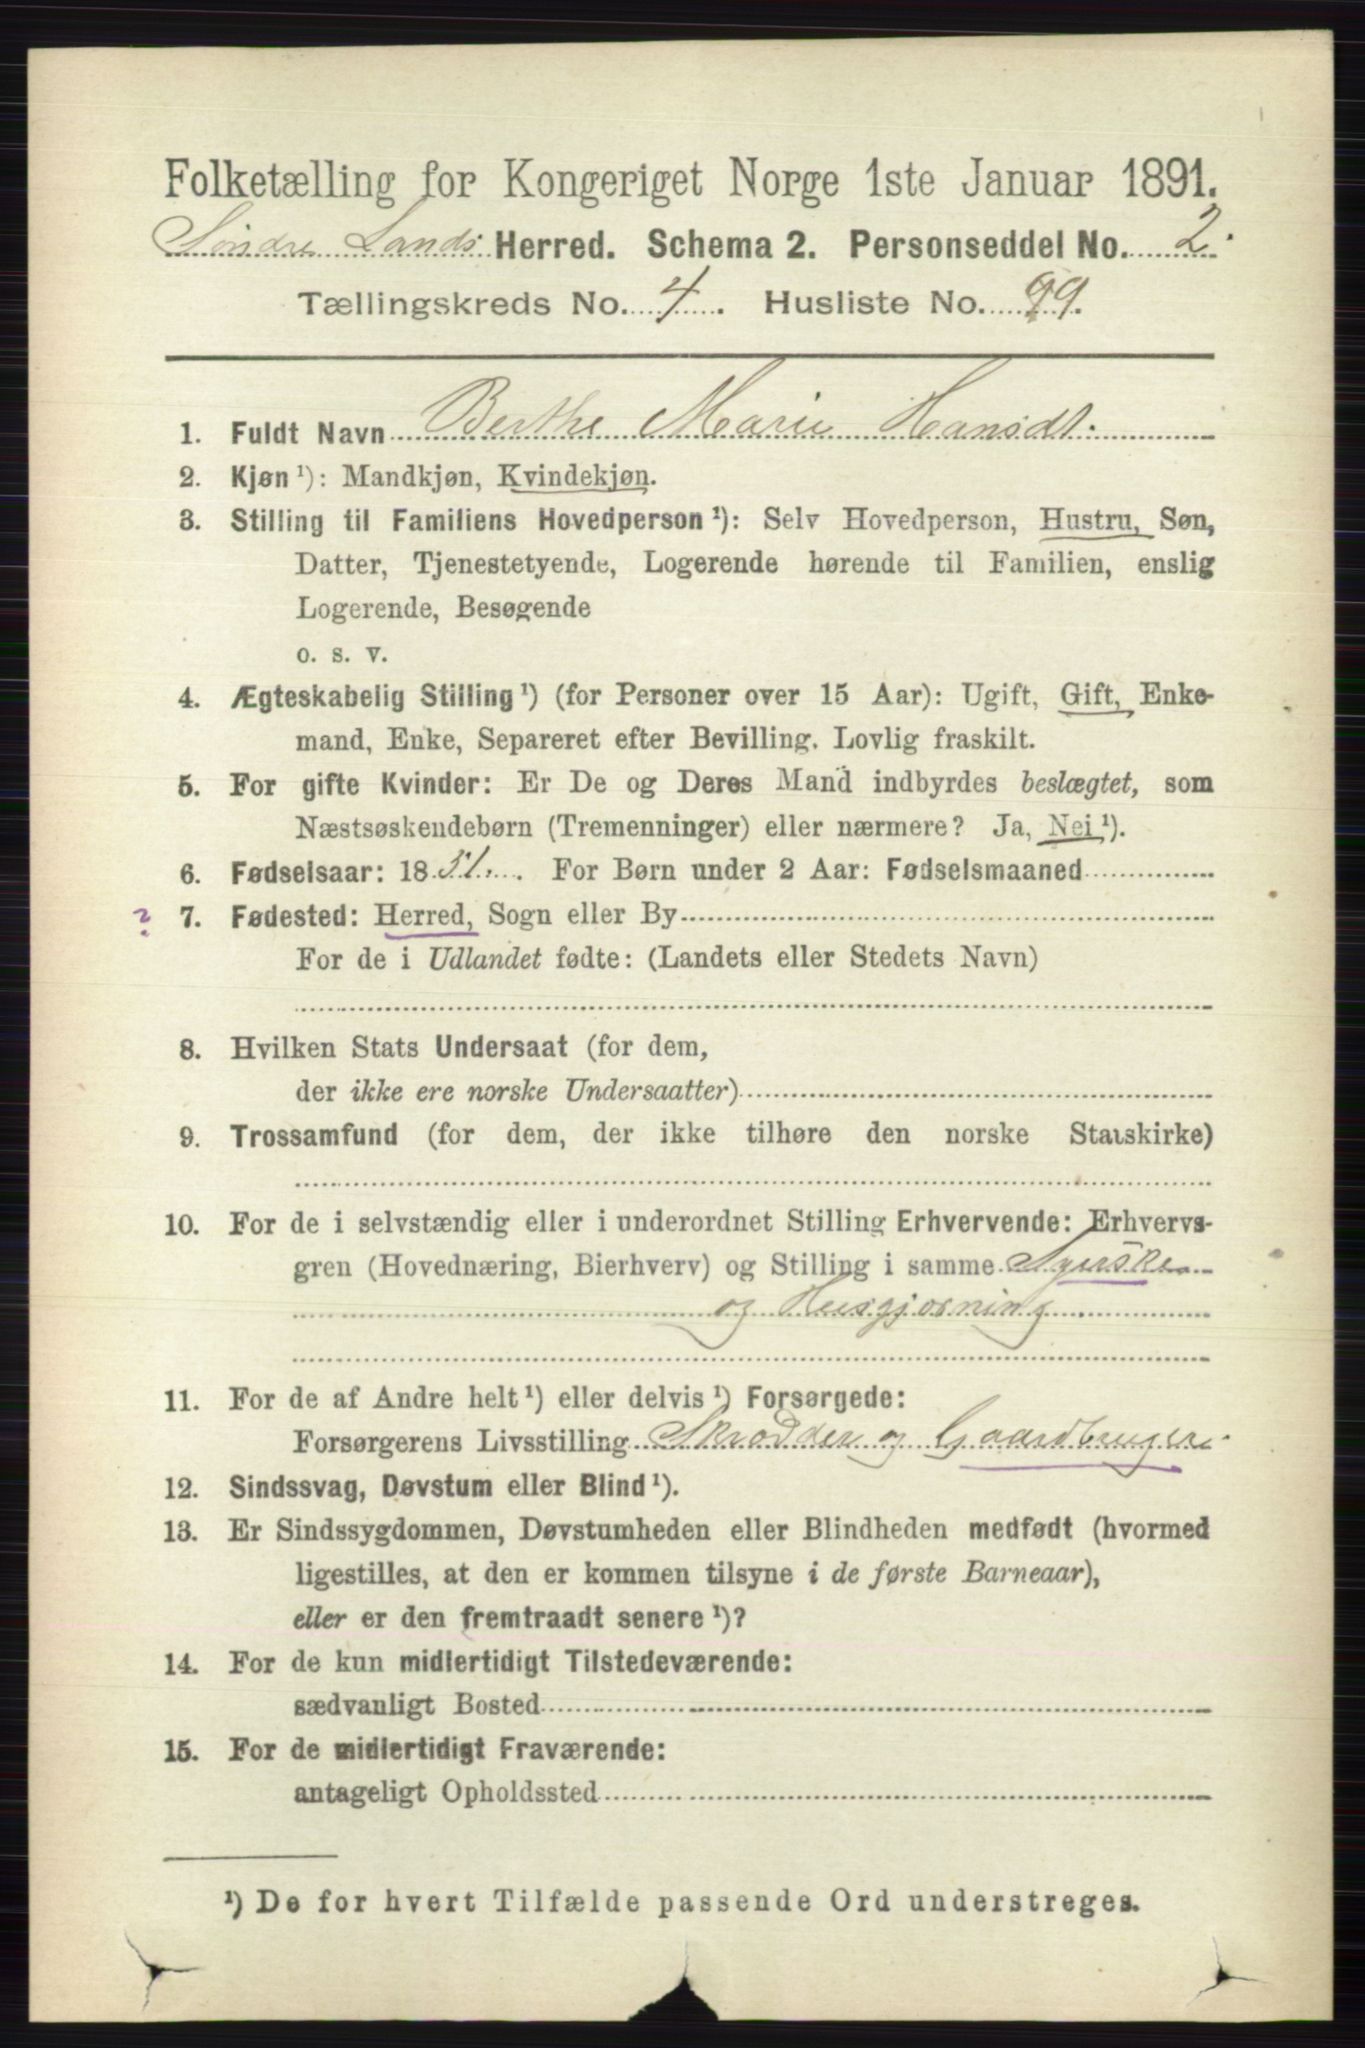 Folketælling for Kongeriget Norge 1ste Januar 1891.
Søndre Lands Herred. Schema 2. Personseddel No. 2.
Tællingskreds No. 4. Husliste No. 99.
1. Fuldt Navn Berthe Marie Hansdt.
2. Kjøn ¹): Mandkjøn, Kvindekjøn.
3. Stilling til Familiens Hovedperson ¹): Selv Hovedperson, Hustru, Søn,
Datter, Tjenestetyende, Logerende hørende til Familien, enslig
Logerende, Besøgende
o. s. v.
4. Ægteskabelig Stilling ¹) (for Personer over 15 Aar): Ugift, Gift, Enke-
mand, Enke, Separeret efter Bevilling. Lovlig fraskilt.
5. For gifte Kvinder: Er De og Deres Mand indbyrdes beslægtet, som
Næstsøskendebørn (Tremenninger) eller nærmere? Ja, Nei ¹).
6. Fødselsaar: 1851. For Børn under 2 Aar: Fødselsmaaned
? 7. Fødested: Herred, Sogn eller By
For de i Udlandet fødte: (Landets eller Stedets Navn)
8. Hvilken Stats Undersaat (for dem,
der ikke ere norske Undersaatter)
9. Trossamfund (for dem, der ikke tilhøre den norske Statskirke)
10. For de i selvstændig eller i underordnet Stilling Erhvervende: Erhvervs-
gren (Hovednæring, Bierhverv) og Stilling i samme Syerske
og Husgjorning
11. For de af Andre helt ¹) eller delvis ¹) Forsørgede:
Forsørgerens Livsstilling Skrædder og Gaardbruger.
12. Sindssvag, Døvstum eller Blind ¹).
13. Er Sindssygdommen, Døvstumheden eller Blindheden medfødt (hvormed
ligestilles, at den er kommen tilsyne i de første Barneaar),
eller er den fremtraadt senere ¹)?
14. For de kun midlertidigt Tilstedeværende:
sædvanligt Bosted
15. For de midlertidigt Fraværende:
antageligt Opholdssted
¹) De for hvert Tilfælde passende Ord understreges.